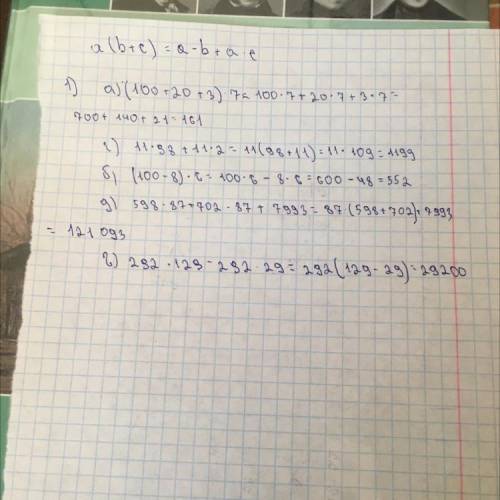 a (b+c) = a·b+a·c
1) а) (100+20+3)·7=100·7+20·7+3·7=
700+140+21=161
г) 11·98+11·2=11(98+11)=11·109=1199
б) (100-8)·6=100·6-8·6=600-48=552
д) 598·87+702·87+7993=87·(598+702)+7993
= 121 093
в) 292·129-292·29=292(129-29)=29200